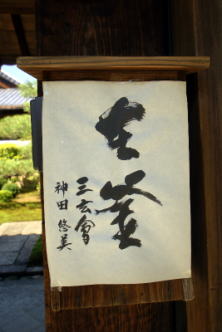 在釜
三玄會
神田 悠美